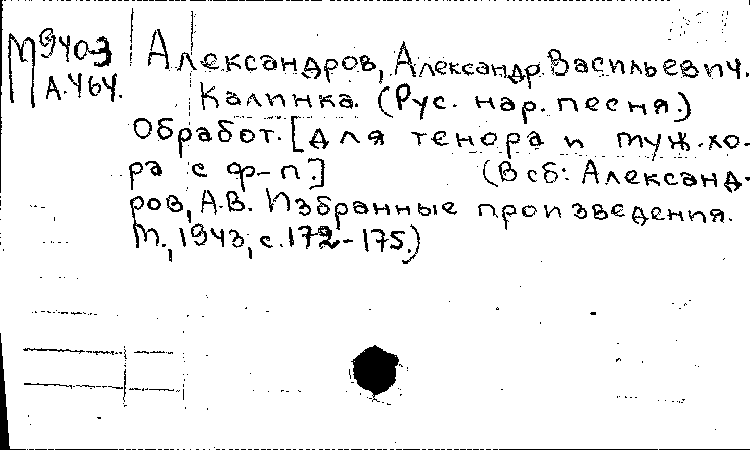 М940-3
А.464.
Александров, Александр Васильевич.
Калинка. (Рус. нар. песня.)
Обработ. [для тенора и муж. хо-
ра с ф-п.] (В сб: Александ-
ров, А.В. Избранные произведения.
М., 1943, с. 172-175.)